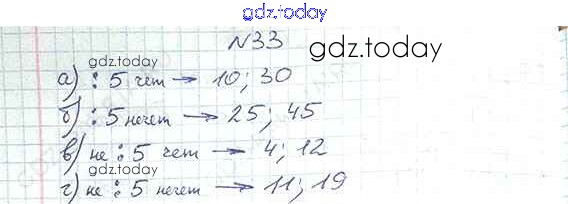 gdz.today
N33
gdz.today
gdz.today
а) ⋮ 5 чет → 10; 30
б) ⋮ 5 нечет → 25; 45
в) не ⋮ 5 чет → 4; 12
gdz.today
г) не ⋮ 5 нечет → 11; 19